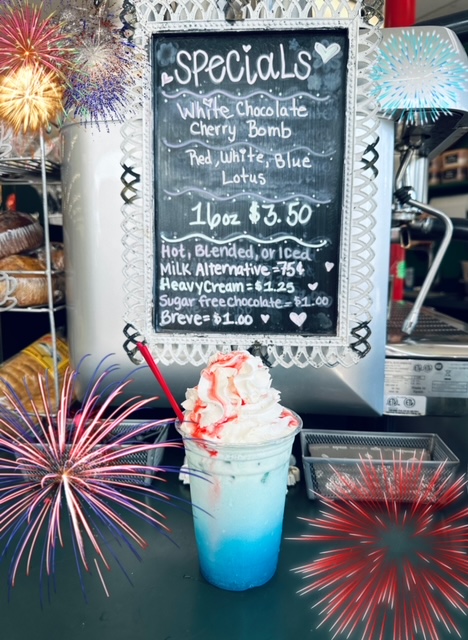 Specials
White Chocolate
Cherry Bomb
Red, White, Blue
Lotus
16oz $3.50
Hot, Blended, or Iced
Milk Alternative = 75¢
Heavy Cream = $1.25
Sugar free chocolate = $1.00
Breve = $1.00